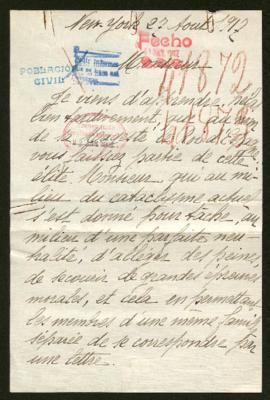 New-York 27 Août 1917
Fecho
Pedir informes
POBLACIÓN
CIVIL
Monsieur
41872
Je viens d'apprendre,
bien tardivement, que au nom
de Sa Majesté le Roi d'Espagne
vous faissiez partie de cette
élite. Monsieur, qui au mi-
lieu du cataclysme actuel
s'est donné pour tâche, au
milieu d'une parfaite neu-
tralité, d'alléger des peines
de secourir de grandes épreuves
morales, et cela en permettant
les membres d'une même famille
séparée de se correspondre par
une lettre.